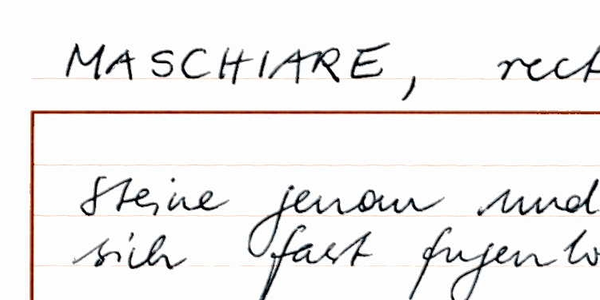 MASCHIARE, rect
Steine genau und
sich fast fugenlo